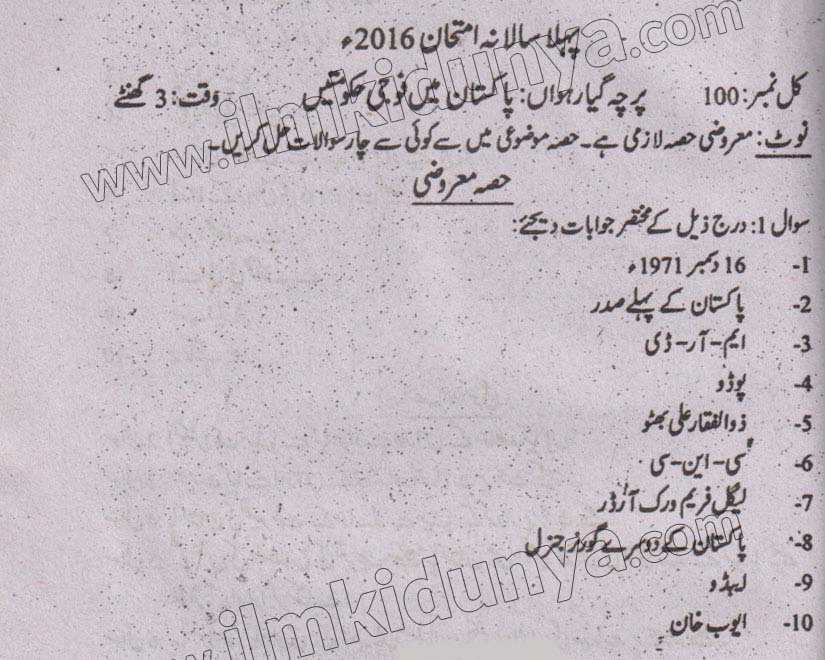 پہلا سالانہ امتحان 2016ء
کل نمبر: 100 پرچہ گیارہواں: پاکستان میں فوجی حکومتیں وقت: 3 گھنٹے
نوٹ: معروضی حصہ لازمی ہے۔ حصہ موضوعی میں سے کوئی سے چار سوالات حل کریں۔
حصہ معروضی
سوال 1: درج ذیل کے مختصر جوابات دیجئے:
1- 16 دسمبر 1971ء
2- پاکستان کے پہلے صدر
3- ایم-آر-ڈی
4- پوڈو
5- ذوالفقار علی بھٹو
6- سی-این-سی
7- لیگل فریم ورک آرڈر
8- پاکستان کے دوسرے گورنر جنرل
9- ایبڈو
10- ایوب خان
www.ilmkidunya.com
www.ilmkidunya.com